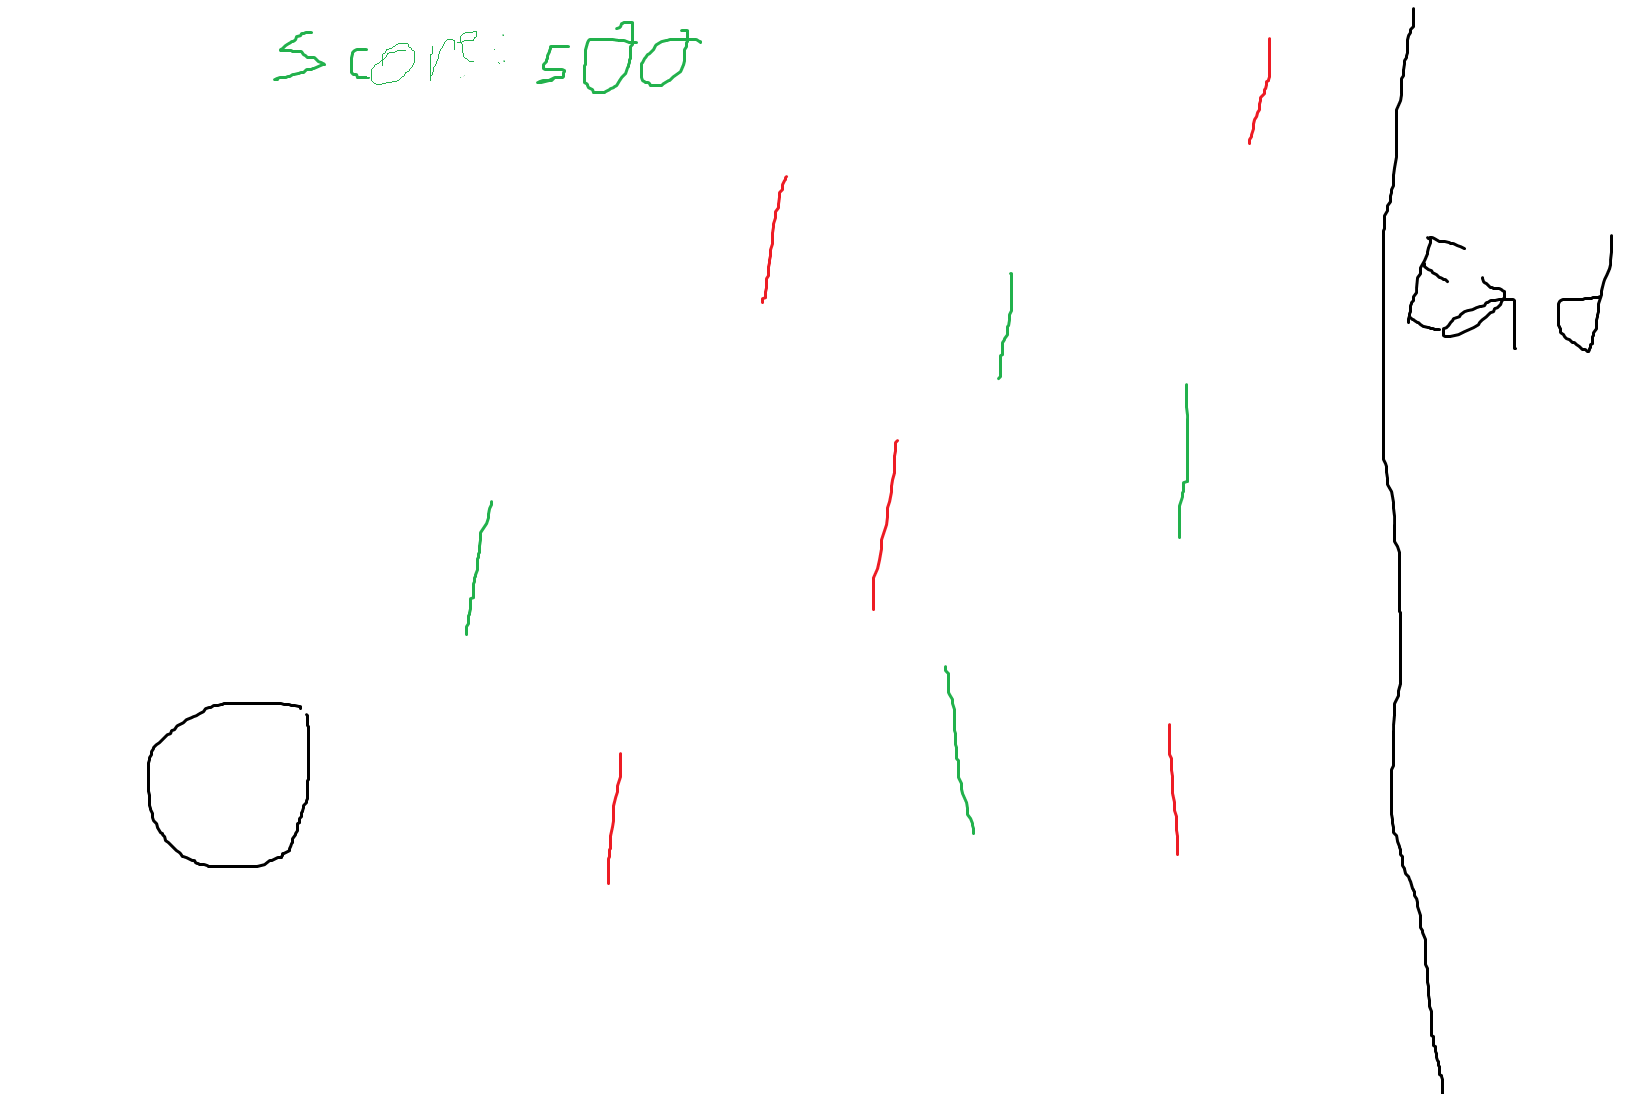 Score: 500
End